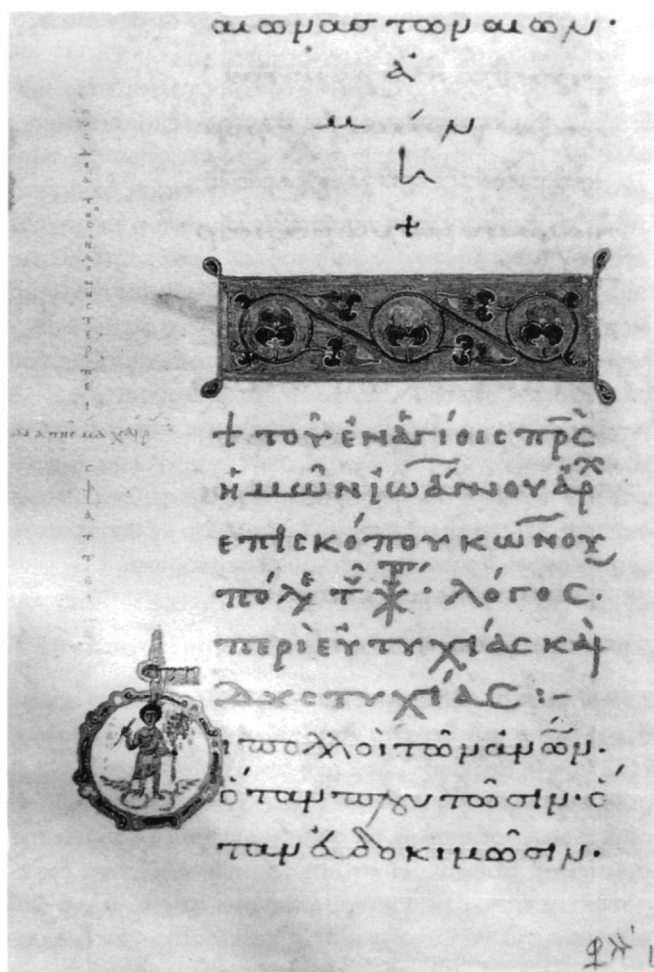 αιωνασ των αιων·
ἀ
μ ν
η
+
+ τοῦ ἐν ἁγίοις πρ̅ς
ἡμῶν ἰωάννου ἀρχ
επισκόπου κων̅ου
πόλε τοῦ · λόγος·
περὶ εὐτυχίας καὶ
δυστυχίας :-
Οι πολλοὶ τῶν ἀν̅ω̅ν·
ὅταν πλουτῶσιν· ὅ
ταν εὐδοκιμῶσιν·